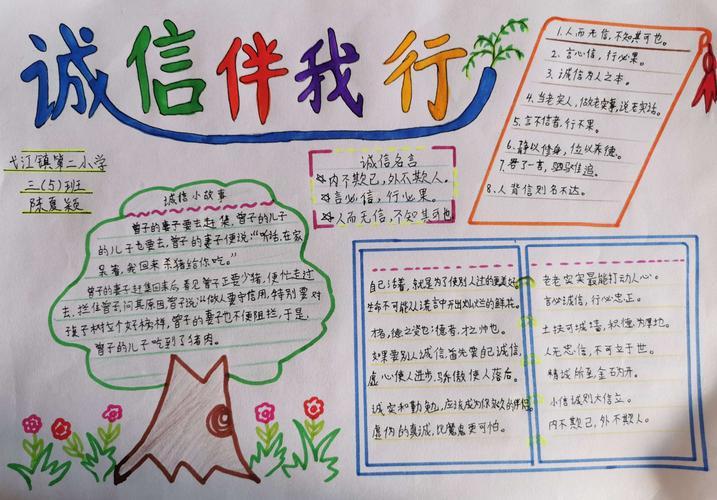 诚信伴我行
弋江镇第二小学
三(5)班
陈夏颖
诚信小故事
曾子的妻子要去赶集,曾子的儿子
的儿子也要去,曾子的妻子便说:“听话,在家
呆着,我回来杀猪给你吃。”
曾子的妻子赶集回来后,看见曾子正要少猪,便忙走过
去,拦住曾子,问其原因,曾子说:“做人要守信用,特别要对
孩子树立个好榜样,曾子的妻子也不便阻拦,于是,
曾子的儿子吃到了猪肉。
诚信名言
内不欺己,外不欺人。
言必信,行必果。
人而无信,不知其可也。
1.人而无信,不知其可也。
2.言必信,行必果。
3.诚信为人之本。
4.当老实人,做老实事,说老实话。
5.言不信者,行不果。
6.静以修身,俭以养德。
7.君子一言,驷马难追。
8.人背信则名不达。
自己活着,就是为了使别人过的更美好。
生命不可能从谎言中开出灿烂的鲜花。
才者,德之资也;德者,才之帅也。
如果要别人诚信,首先要自己诚信,
虚心使人进步,骄傲使人落后。
诚实和勤勉,应该成为你永久的伴侣。
虚伪的真诚,比魔鬼更可怕。
老老实实最能打动人心。
言必诚信,行必忠正。
土扶可城墙,积德为厚地。
人无忠信,不可立于世。
精诚所至金石为开。
小信诚则大信立。
内不欺己,外不欺人。